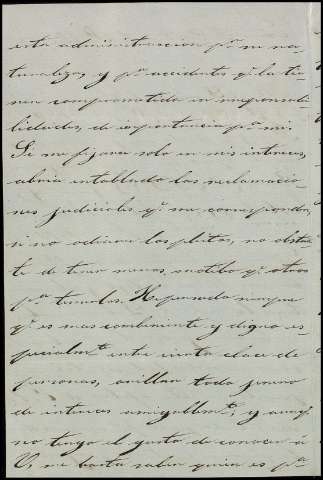 esta administracion pr. su na-
turaleza, y pr. accidentes qe. la tie-
nen comprometida en responsabi-
lidades, de importancia pa. mi.
Si me fijara solo en mis intereses,
abria entablado las reclamacio-
nes judiciales qe. me corresponden,
si no odiara los pleitos, no obstan-
te de tener menos motibo qe. otros
pa. temerlos. He pensado siempre
qe. es mas combeniente y digno es-
pecialmte. entre cierta clace de
personas, orillar todo genero
de intereses amigablemte., y aunqe.
no tengo el gusto de conocer á
V, me basta saber quien es pa.